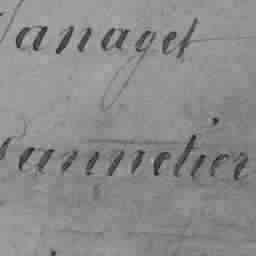 anaget
annetier